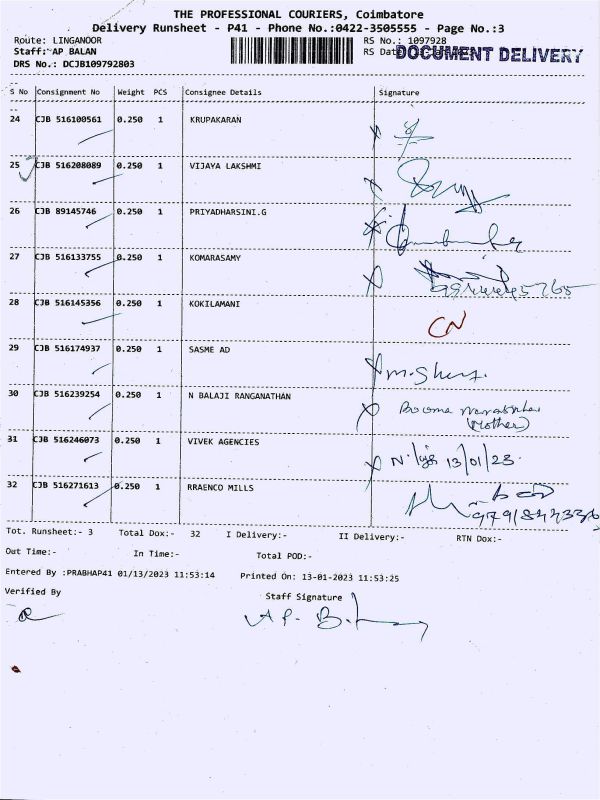 THE PROFESSIONAL COURIERS, Coimbatore
Delivery Runsheet - P41 - Phone No.:0422-3505555 - Page No.:3
Route: LINGANOOR
RS No.: 1097928
Staff: AP BALAN
RS Date
DOCUMENT DELIVERY
DRS No.: DCJB109792803
S No Consignment No Weight PCS Consignee Details Signature
24 CJB 516100561 0.250 1 KRUPAKARAN
25 CJB 516208089 0.250 1 VIJAYA LAKSHMI
26 CJB 89145746 0.250 1 PRIYADHARSINI.G
27 CJB 516133755 0.250 1 KOMARASAMY
28 CJB 516145356 0.250 1 KOKILAMANI CN
29 CJB 516174937 0.250 1 SASME AD
30 CJB 516239254 0.250 1 N BALAJI RANGANATHAN
(Mother)
31 CJB 516246073 0.250 1 VIVEK AGENCIES
13/01/23
32 CJB 516271613 0.250 1 RRAENCO MILLS
Tot. Runsheet:- 3 Total Dox:- 32 I Delivery:- II Delivery:- RTN Dox:-
Out Time:- In Time:- Total POD:-
Entered By :PRABHAP41 01/13/2023 11:53:14 Printed On: 13-01-2023 11:53:25
Verified By Staff Signature